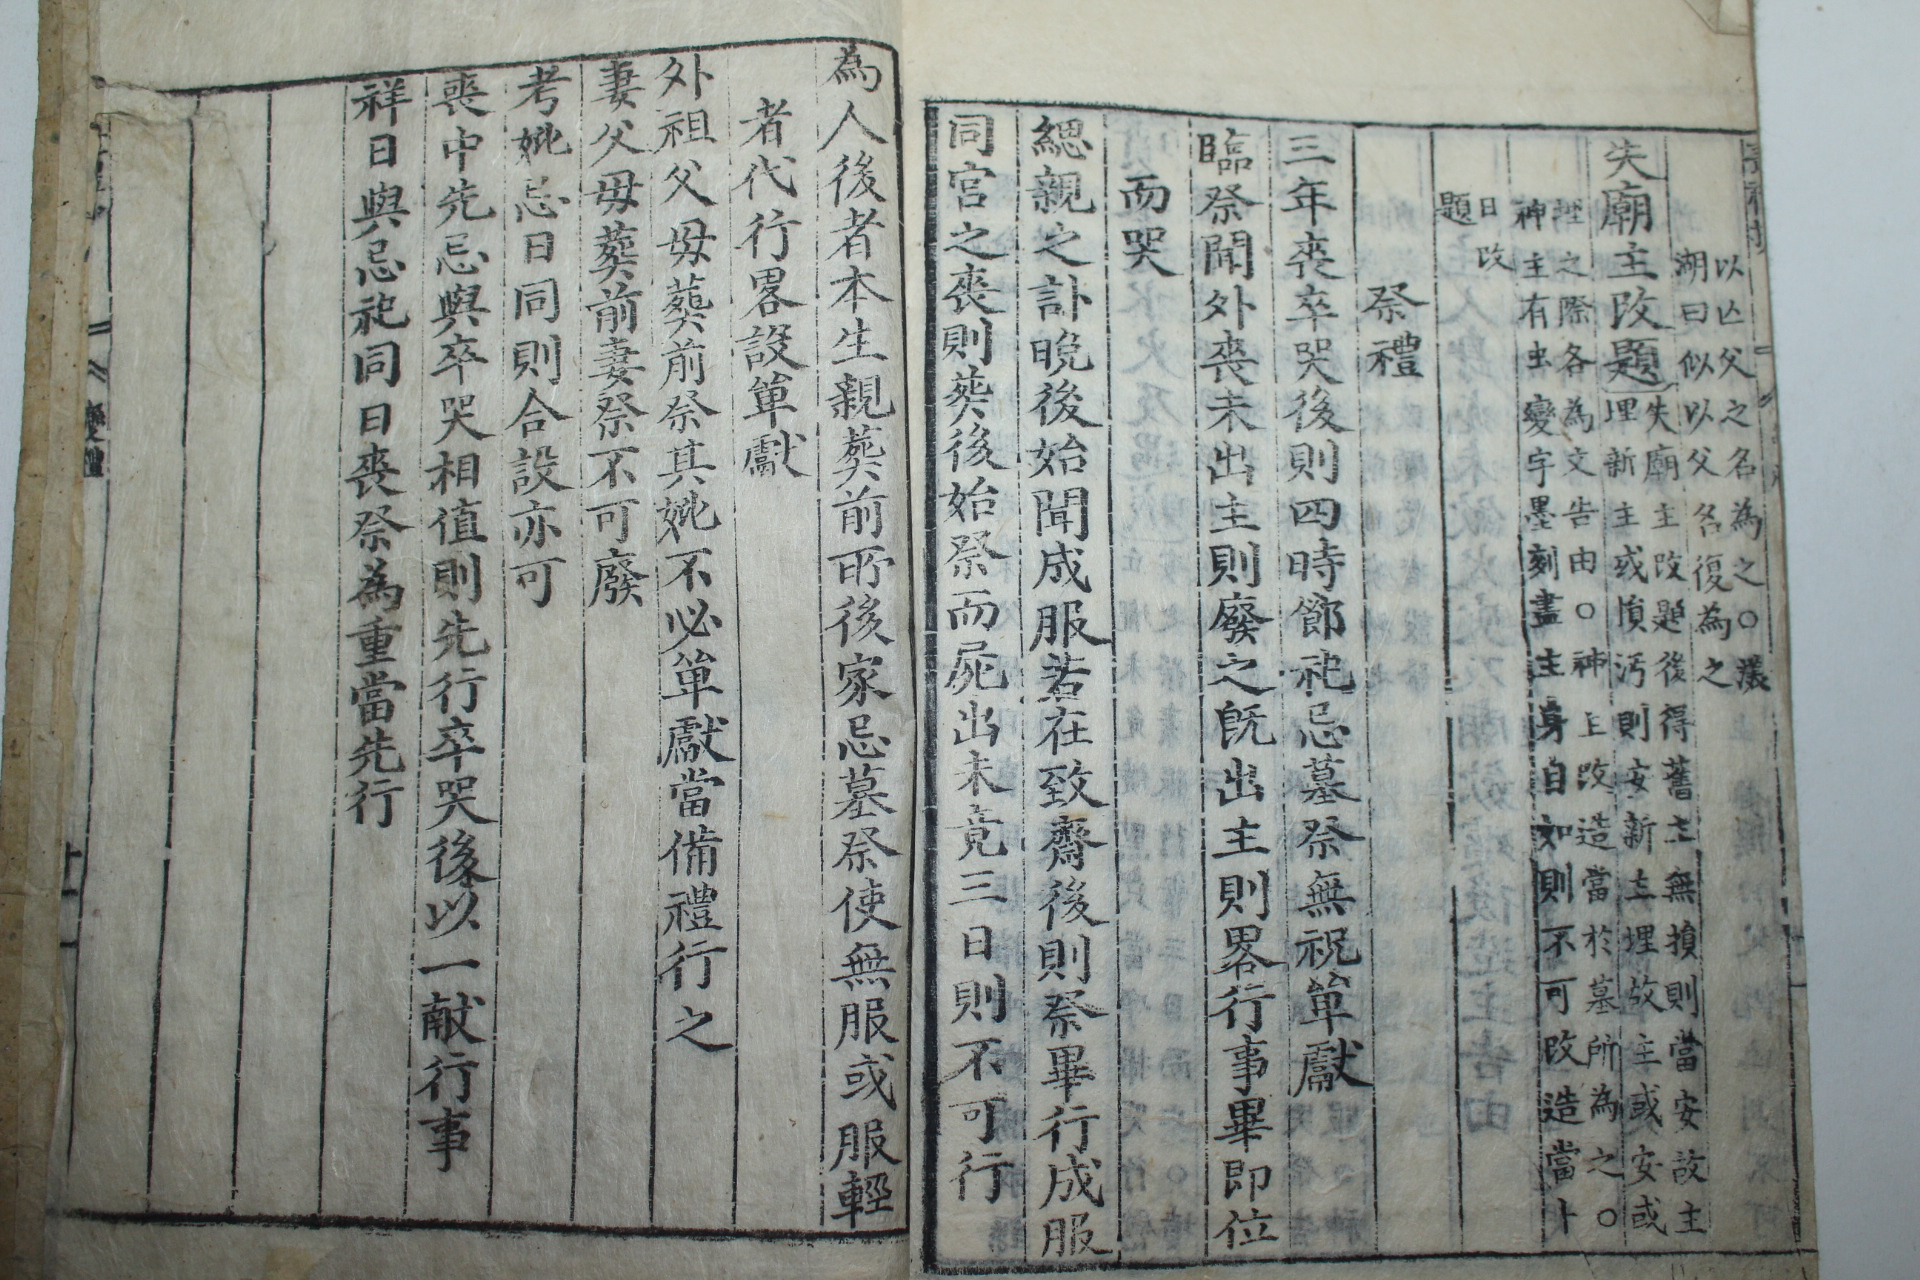 以亡父之名為之○漾
湖曰似以父名復為之
失廟主改題
失廟主改題後得舊主無損則當安故主
埋新主或慎汚則安新主埋故主或安或
埋之際各為文告由○神主改造當於墓所為之○
神主有虫變字墨刻盡主身自如則不可改造當卜
日改
題
祭禮
三年喪卒哭後則四時節祀忌墓祭無祝單獻
臨祭聞外喪未出主則廢之旣出主則畧行事畢即位
而哭
緦親之訃晩後始聞成服若在致齋後則祭畢行成服
同宮之喪則葬後始祭而屍出未竟三日則不可行
為人後者本生親葬前所後家忌墓祭使無服或服輕
者代行畧設單獻
外祖父母葬前祭其妣不必單獻當備禮行之
妻父母葬前妻祭不可廢
考妣忌日同則合設亦可
喪中先忌與卒哭相值則先行卒哭後以一献行事
祥日與忌祀同日喪祭為重當先行
變禮
十一